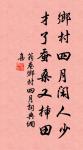 鄉村四月閑人少
才了蚕桑又插田
翁卷鄉村四月詞典網
集